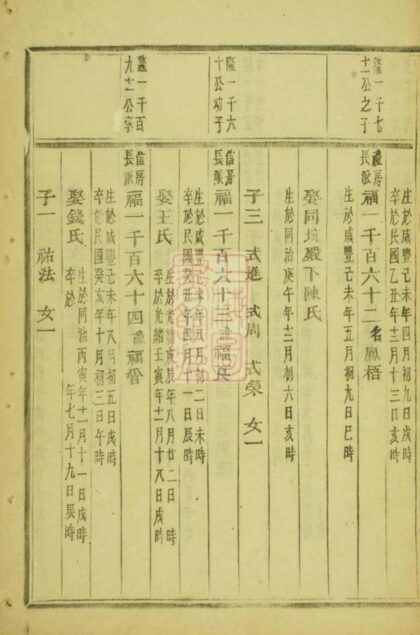 生於咸豐己未年四月初八日戌時
卒於民國乙丑年十二月十三日亥時
隆一千七
十一公之子
禮房
長派
福一千百六十二名鳳梧
生於咸豐己未年五月初九日巳時
娶同坑殿下陳氏
生於同治庚午年十二月初六日亥時
子三 式進 式周 式榮 女一
隆一千六
十公幼子
信房
長派
福一千百六十三諱福民
生於咸豐己未年八月初二日未時
卒於民國癸丑年四月初十日時
娶王氏
生於光緒庚辰年八月廿二日時
卒於光緒壬寅年十二月十八日戌時
隆一千百
九十一公寧
信房
長派
福一千百六十四諱福
生於咸豐己未年八月初五日戌時
卒於民國癸亥年十月初三日午時
娶錢氏
生於同治丙寅年十一月十一日戌時
卒於 年七月十九日辰時
子一 祐法 女一